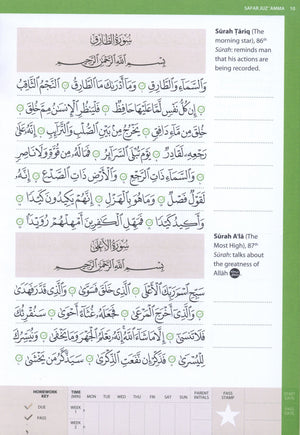 SAFAR JUZ' 'AMMA 10
سُورَةُ الطَّارِقِ
بِسْمِ اللَّهِ الرَّحْمٰنِ الرَّحِيمِ
وَالسَّمَاءِ وَالطَّارِقِ وَمَا أَدْرَاكَ مَا الطَّارِقُ النَّجْمُ الثَّاقِبُ
إِنْ كُلُّ نَفْسٍ لَمَّا عَلَيْهَا حَافِظٌ فَلْيَنْظُرِ الْإِنْسَانُ مِمَّ خُلِقَ
خُلِقَ مِنْ مَاءٍ دَافِقٍ يَخْرُجُ مِنْ بَيْنِ الصُّلْبِ وَالتَّرَائِبِ إِنَّهُ عَلَىٰ
رَجْعِهِ لَقَادِرٌ يَوْمَ تُبْلَى السَّرَائِرُ فَمَا لَهُ مِنْ قُوَّةٍ وَلَا نَاصِرٍ
وَالسَّمَاءِ ذَاتِ الرَّجْعِ وَالْأَرْضِ ذَاتِ الصَّدْعِ إِنَّهُ
لَقَوْلٌ فَصْلٌ وَمَا هُوَ بِالْهَزْلِ إِنَّهُمْ يَكِيدُونَ كَيْدًا
وَأَكِيدُ كَيْدًا فَمَهِّلِ الْكَافِرِينَ أَمْهِلْهُمْ رُوَيْدًا
سُورَةُ الْأَعْلَىٰ
بِسْمِ اللَّهِ الرَّحْمٰنِ الرَّحِيمِ
سَبِّحِ اسْمَ رَبِّكَ الْأَعْلَى الَّذِي خَلَقَ فَسَوَّىٰ وَالَّذِي قَدَّرَ فَهَدَىٰ
وَالَّذِي أَخْرَجَ الْمَرْعَىٰ فَجَعَلَهُ غُثَاءً أَحْوَىٰ سَنُقْرِئُكَ
فَلَا تَنْسَىٰ إِلَّا مَا شَاءَ اللَّهُ إِنَّهُ يَعْلَمُ الْجَهْرَ وَمَا يَخْفَىٰ وَنُيَسِّرُكَ
لِلْيُسْرَىٰ فَذَكِّرْ إِنْ نَفَعَتِ الذِّكْرَىٰ سَيَذَّكَّرُ مَنْ يَخْشَىٰ
Sūrah Ṭāriq (The
morning star), 86th
Sūrah: reminds man
that his actions are
being recorded.
Sūrah A'lā (The
Most High), 87th
Sūrah: talks about
the greatness of
Allāh
HOMEWORK KEY TIME (MIN) MON TUE WED THU FRI SAT SUN PARENT INITIALS PASS STAMP START DATE
DUE WEEK 1
PASS WEEK 2 PASS DATE